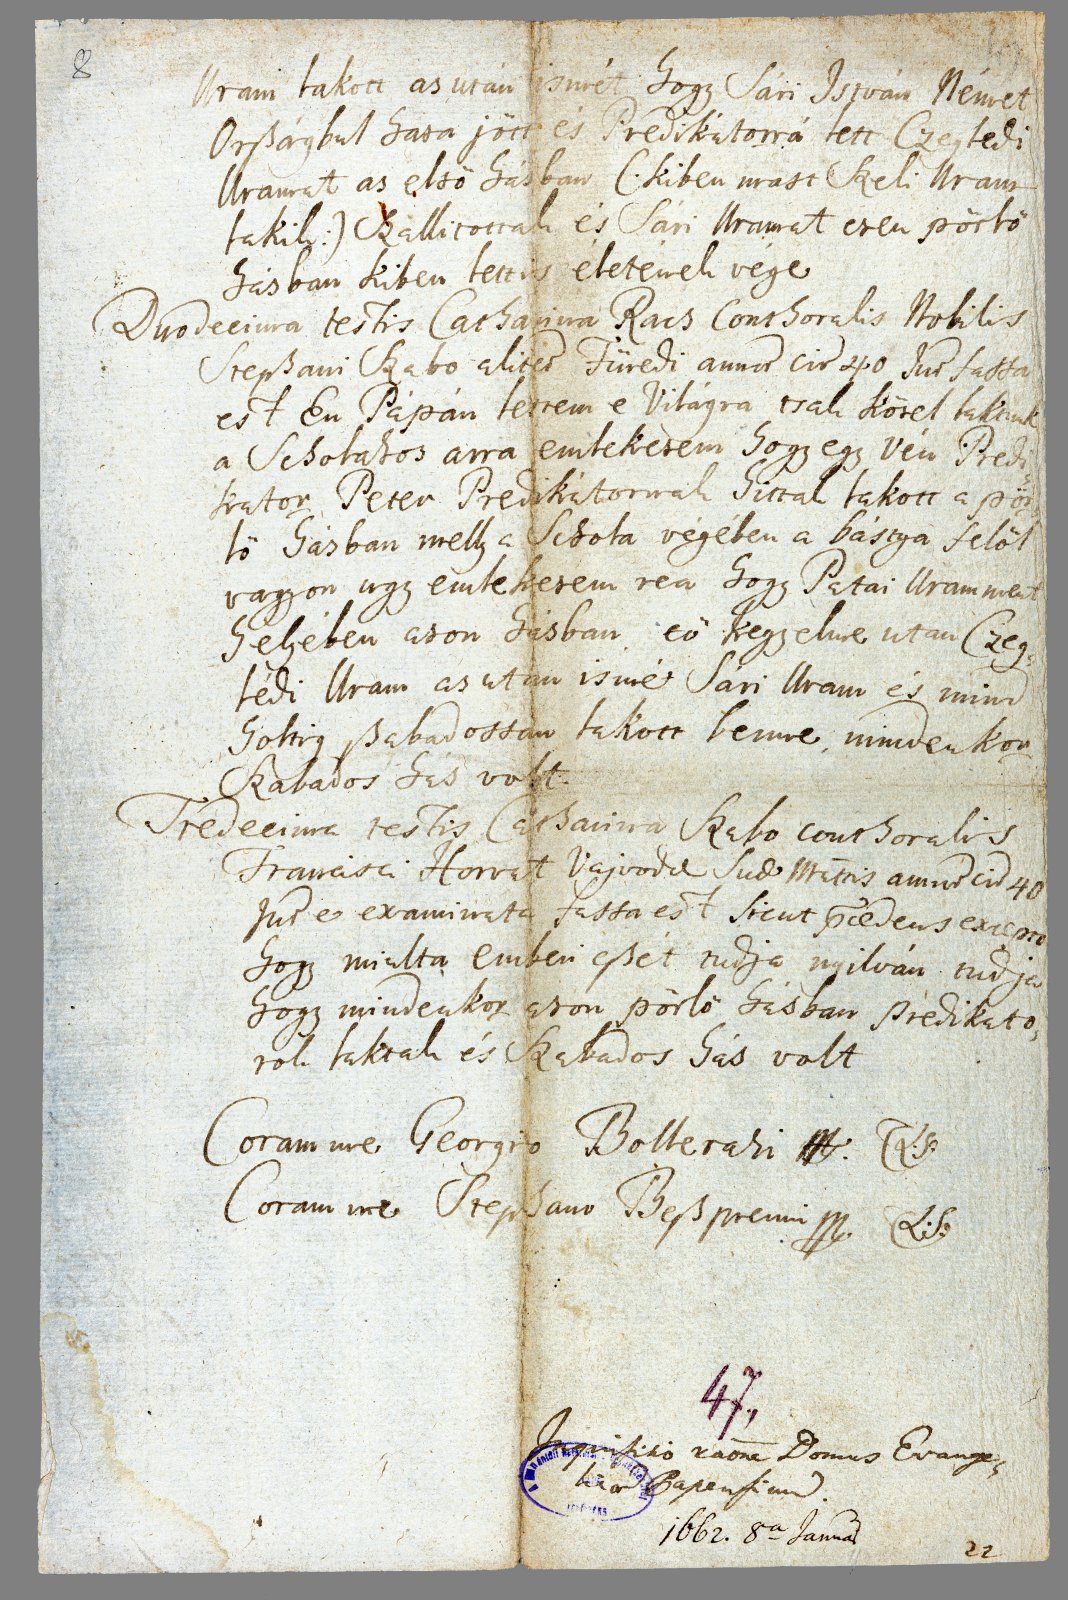 8
Uram lakott as után ismét hogy Sári István Német
Orßágbul haza jött és Predikátorrá lett Czegledi
Uramat az elsö házban (: kiben mast Szeli Uram
lakik :) Szállitották és Sári Uramat ezen pörlö
házban kiben lett is életének vége
Duodecima testis Catharina Racz Consthoralis Nobilis
Stephani Szabo aliter Füredi annor cir 40 Jur fassa
est En Pápán lettem e Világra csak közel laktunk
a Scholahos arra emlekezem hogy egy Vén Predi
kator Peter Predikátornak hittak lakott a pör
lö házban melly a Schola végében a bástya felöl
vagyon ugy emlekezem rea hogy Patai Uram ment
helyében azon házban eö kegyelme utan Czeg-
lédi Uram az utan ismé Sári Uram és mind
holtig ßabadossan lakott benne, mindenkor
Szabados ház volt.
Tredecima testis Catharina Szabo consthoralis
Francisci Horvat Vajvodæ Suæ Mattis annor cir 40
Jur e examinata fassa est sicut pcedens excepto
hogy miolta emberi eßét tudja nyilván tudja
hogy mindenkor azon pörlö házban predikato-
rok laktak és Szabados ház volt
Coram me Georgio Bollerazi mp. (L.S.)
Coram me Stephano Beßpremi mp. (L.S.)
47,
Inquisitio raõne Domus Evange-
licor Papensium.
1662. 8a Januar
22